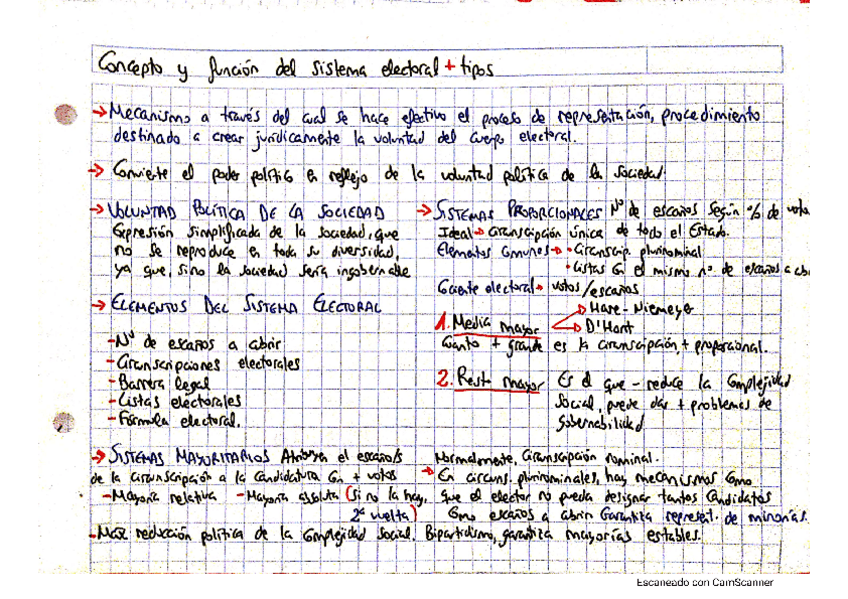 Concepto y función del sistema electoral + tipos
→ Mecanismo a través del cual se hace efectivo el proceso de representación, procedimiento
destinado a crear jurídicamente la voluntad del cuerpo electoral.
→ Convierte el poder político en reflejo de la voluntad política de la sociedad.
→ VOLUNTAD POLÍTICA DE LA SOCIEDAD
Expresión simplificada de la sociedad, que
no se reproduce en toda su diversidad,
ya que, sino la sociedad sería ingobernable
→ ELEMENTOS DEL SISTEMA ELECTORAL
- Nº de escaños a abrir
- Circunscripciones electorales
- Barrera legal
- Listas electorales
- Fórmula electoral.
→ SISTEMAS PROPORCIONALES Nº de escaños según % de voto
Ideal → Circunscripción única de todo el Estado.
Elementos comunes → • Circunscrip. plurinominal
• Listas con el mismo nº de escaños a
Cociente electoral → votos/escaños
1. Media mayor → Hare-Niemeyer
→ D'Hont
Cuanto + grande es la circunscripción, + proporcional.
2. Resto mayor Es el que - reduce la complejidad
social, puede dar + problemas de
gobernabilidad
→ SISTEMAS MAYORITARIOS Atribuye el escaño/s
de la circunscripción a la candidatura con + votos
- Mayoría relativa - Mayoría absoluta (si no la hay,
2ª vuelta)
Normalmente, circunscripción nominal.
→ En circuns. plurinominales, hay mecanismos como
que el elector no pueda designar tantos candidatos
como escaños a abrir. Garantiza represent. de minorías.
- Max reducción política de la complejidad social. Bipartidismo, garantiza mayorías estables.
Escaneado con CamScanner